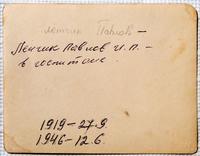 Ленчик Павлов –
Ленчик Павлов И.П. –
в госпитале.
1919–27.9.
1946–12.6.